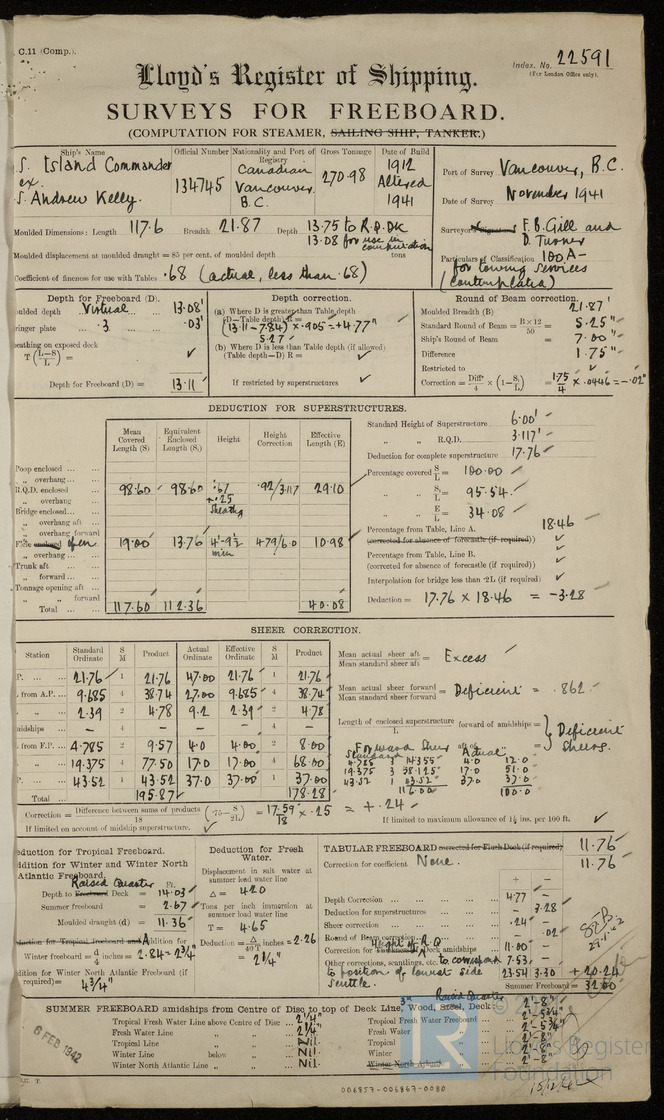 C.11 (Comp.).
Index. No. 22591
(For London Office only).
Lloyd's Register of Shipping.
SURVEYS FOR FREEBOARD.
(COMPUTATION FOR STEAMER, SAILING SHIP, TANKER.)
Ship's Name
Official Number
Nationality and Port of Registry
Gross Tonnage
Date of Build
S. Island Commander
ex.
S. Andrew Kelly.
134745
Canadian
Vancouver.
B.C.
270.98
1912
Altered
1941
Port of Survey Vancouver, B.C.
Date of Survey November 1941
F.B. Gill and
D. Turner
Moulded Dimensions: Length 117.6 Breadth 21.87 Depth 13.75 to R.Q.DK
13.08 for use in computation
Moulded displacement at moulded draught = 85 per cent. of moulded depth tons
Coefficient of fineness for use with Tables .68 (actual, less than .68)
Particulars of Classification 100A-
for towing services
(contemplated)
Depth for Freeboard (D).
Virtual 13.08'
ringer plate .3 .03'
eathing on exposed deck
T (L-S/L) =
Depth for Freeboard (D) = 13.11
Depth correction.
(a) Where D is greater than Table depth
(D—Table depth) R =
(13.11-7.84) × .905 = +4.77"
5.27
(b) Where D is less than Table depth (if allowed)
(Table depth—D) R =
If restricted by superstructures
Round of Beam correction.
Moulded Breadth (B) 21.87'
Standard Round of Beam = B×12/50 = 5.25"
Ship's Round of Beam = 7.00"
Difference 1.75"
Restricted to
Correction = Diff/4 × (1-S₁/L) = 1.75/4 × .0446 = -.02"
DEDUCTION FOR SUPERSTRUCTURES.
Mean Covered Length (S)
Equivalent Enclosed Length (S₁)
Height
Height Correction
Effective Length (E)
Poop enclosed
" overhang
R.Q.D. enclosed 98.60 98.60 2.67 +.25 sheath .92/3.117 29.10
" overhang
Bridge enclosed
" overhang aft
" overhang forward
F'cle enclosed open 19.00 13.76 4'-9½ min 4.79/6.0 10.98
" overhang
Trunk aft
" forward
Tonnage opening aft
" " forward
Total 117.60 112.36 40.08
Standard Height of Superstructure 6.00'
" " R.Q.D. 3.117'
Deduction for complete superstructure 17.76
Percentage covered S/L = 100.00
" " S₁/L = 95.54
" " E/L = 34.08
Percentage from Table, Line A. 18.46
(corrected for absence of forecastle (if required))
Percentage from Table, Line B.
(corrected for absence of forecastle (if required))
Interpolation for bridge less than ·2L (if required)
Deduction = 17.76 × 18.46 = -3.28
SHEER CORRECTION.
Station
Standard Ordinate
S M
Product
Actual Ordinate
Effective Ordinate
S M
Product
P. 21.76 1 21.76 47.00 21.76 1 21.76
from A.P. 9.685 4 38.74 27.00 9.685 4 38.74
" 2.39 2 4.78 9.2 2.39 2 4.78
midships — 4 — — — 4 —
from F.P. 4.785 2 9.57 4.0 4.00 2 8.00
" 19.375 4 77.50 17.0 17.00 4 68.00
P. 43.52 1 43.52 37.0 37.00 1 37.00
Total 195.87 178.28
Mean actual sheer aft / Mean standard sheer aft = Excess
Mean actual sheer forward / Mean standard sheer forward = Deficient = .862
Length of enclosed superstructure / L forward of amidships =
aft of " =
Deficient Sheers.
Forward Sheer
Standard Actual
4.785 3 14.355 4.0 12.0
19.375 3 58.125 17.0 51.0
43.52 1 43.52 37.0 37.0
116.00 100.0
Correction = Difference between sums of products/18 (·75 - S/2L) = 17.59/18 × .25 = +.24
If limited on account of midship superstructure.
If limited to maximum allowance of 1½ ins. per 100 ft.
eduction for Tropical Freeboard.
ddition for Winter and Winter North Atlantic Freeboard.
Raised Quarter Ft.
Depth to Freeboard Deck = 14.03
Summer freeboard = 2.67
Moulded draught (d) = 11.36
duction for Tropical freeboard and Addition for
Winter freeboard = d/4 inches = 2.84 = 2¾"
ddition for Winter North Atlantic Freeboard (if required) =
4¾"
Deduction for Fresh Water.
Displacement in salt water at summer load water line
Δ = 420
Tons per inch immersion at summer load water line
T = 4.65
Deduction = Δ/40T inches = 2.26
= 2¼"
TABULAR FREEBOARD corrected for Flush Deck (if required) 11.76
Correction for coefficient None. 11.76
+ −
Depth Correction 4.77 —
Deduction for superstructures — 3.28
Sheer correction .24 —
Round of Beam correction — .02
Correction for Height of R.Q. Deck amidships 11.00 —
Other corrections, scantlings, etc. to correspond 7.53 —
to position of lowest side
scuttle.
23.54 3.30 +20.24
Summer Freeboard = 32.00
SUMMER FREEBOARD amidships from Centre of Disc to top of Deck Line, Wood, Steel, Deck: Raised Quarter 2'-8"
Tropical Fresh Water Line above Centre of Disc 2¼"
Fresh Water Line " " 2¼"
Tropical Line " " Nil.
Winter Line below " Nil.
Winter North Atlantic Line " " Nil.
Tropical Fresh Water Freeboard 2'-5¾"
Fresh Water " 2'-5¾"
Tropical " 2'-8"
Winter " 2'-8"
Winter North Atlantic " 2'-8"
6 FEB 1942
006857-006867-0080
Lloyd's Register
Foundation